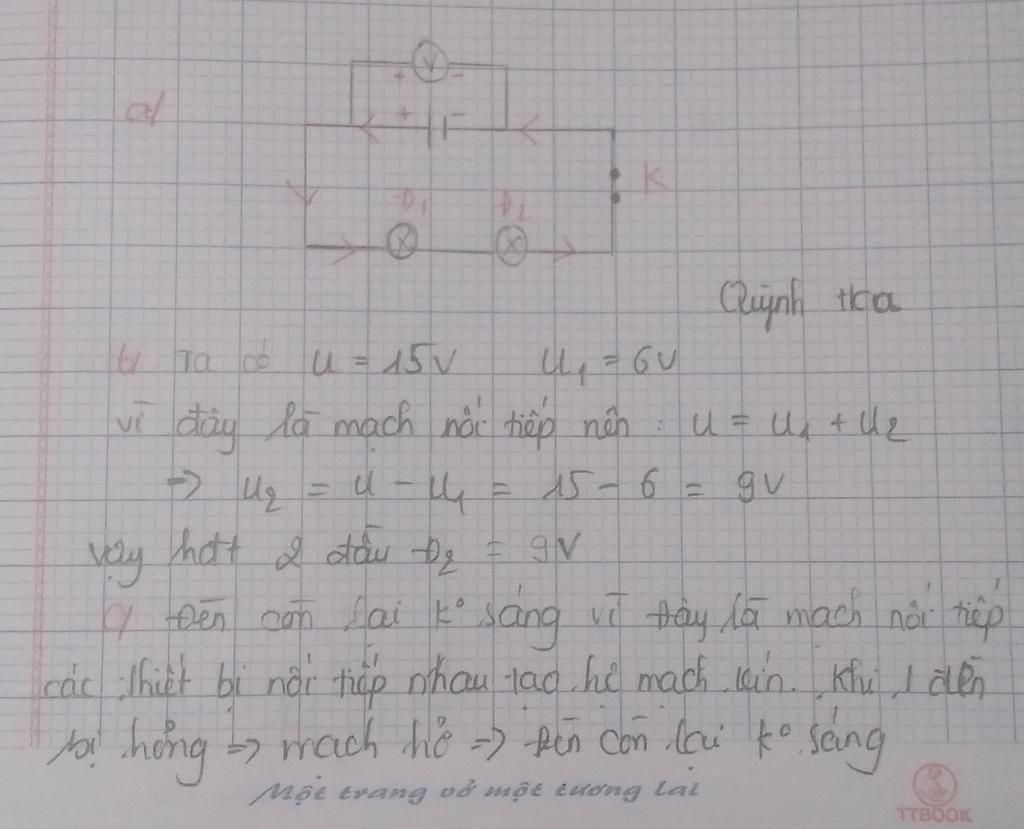 V
+ -
a/
+
K
Đ1 Đ2
Quỳnh Hoa
b/ Ta có U = 15V U1 = 6V
vì đây là mạch nối tiếp nên : U = U1 + U2
=> U2 = U - U1 = 15 - 6 = 9V
Vậy hđt 2 đầu Đ2 = 9V
c/ Đèn còn lại k° sáng vì đây là mạch nối tiếp
các thiết bị nối tiếp nhau tạo hê mạch kín. Khi 1 đèn
bị hỏng => mạch hở => Đèn còn lại k° sáng
Một trang vở một tương lai
TTBOOK